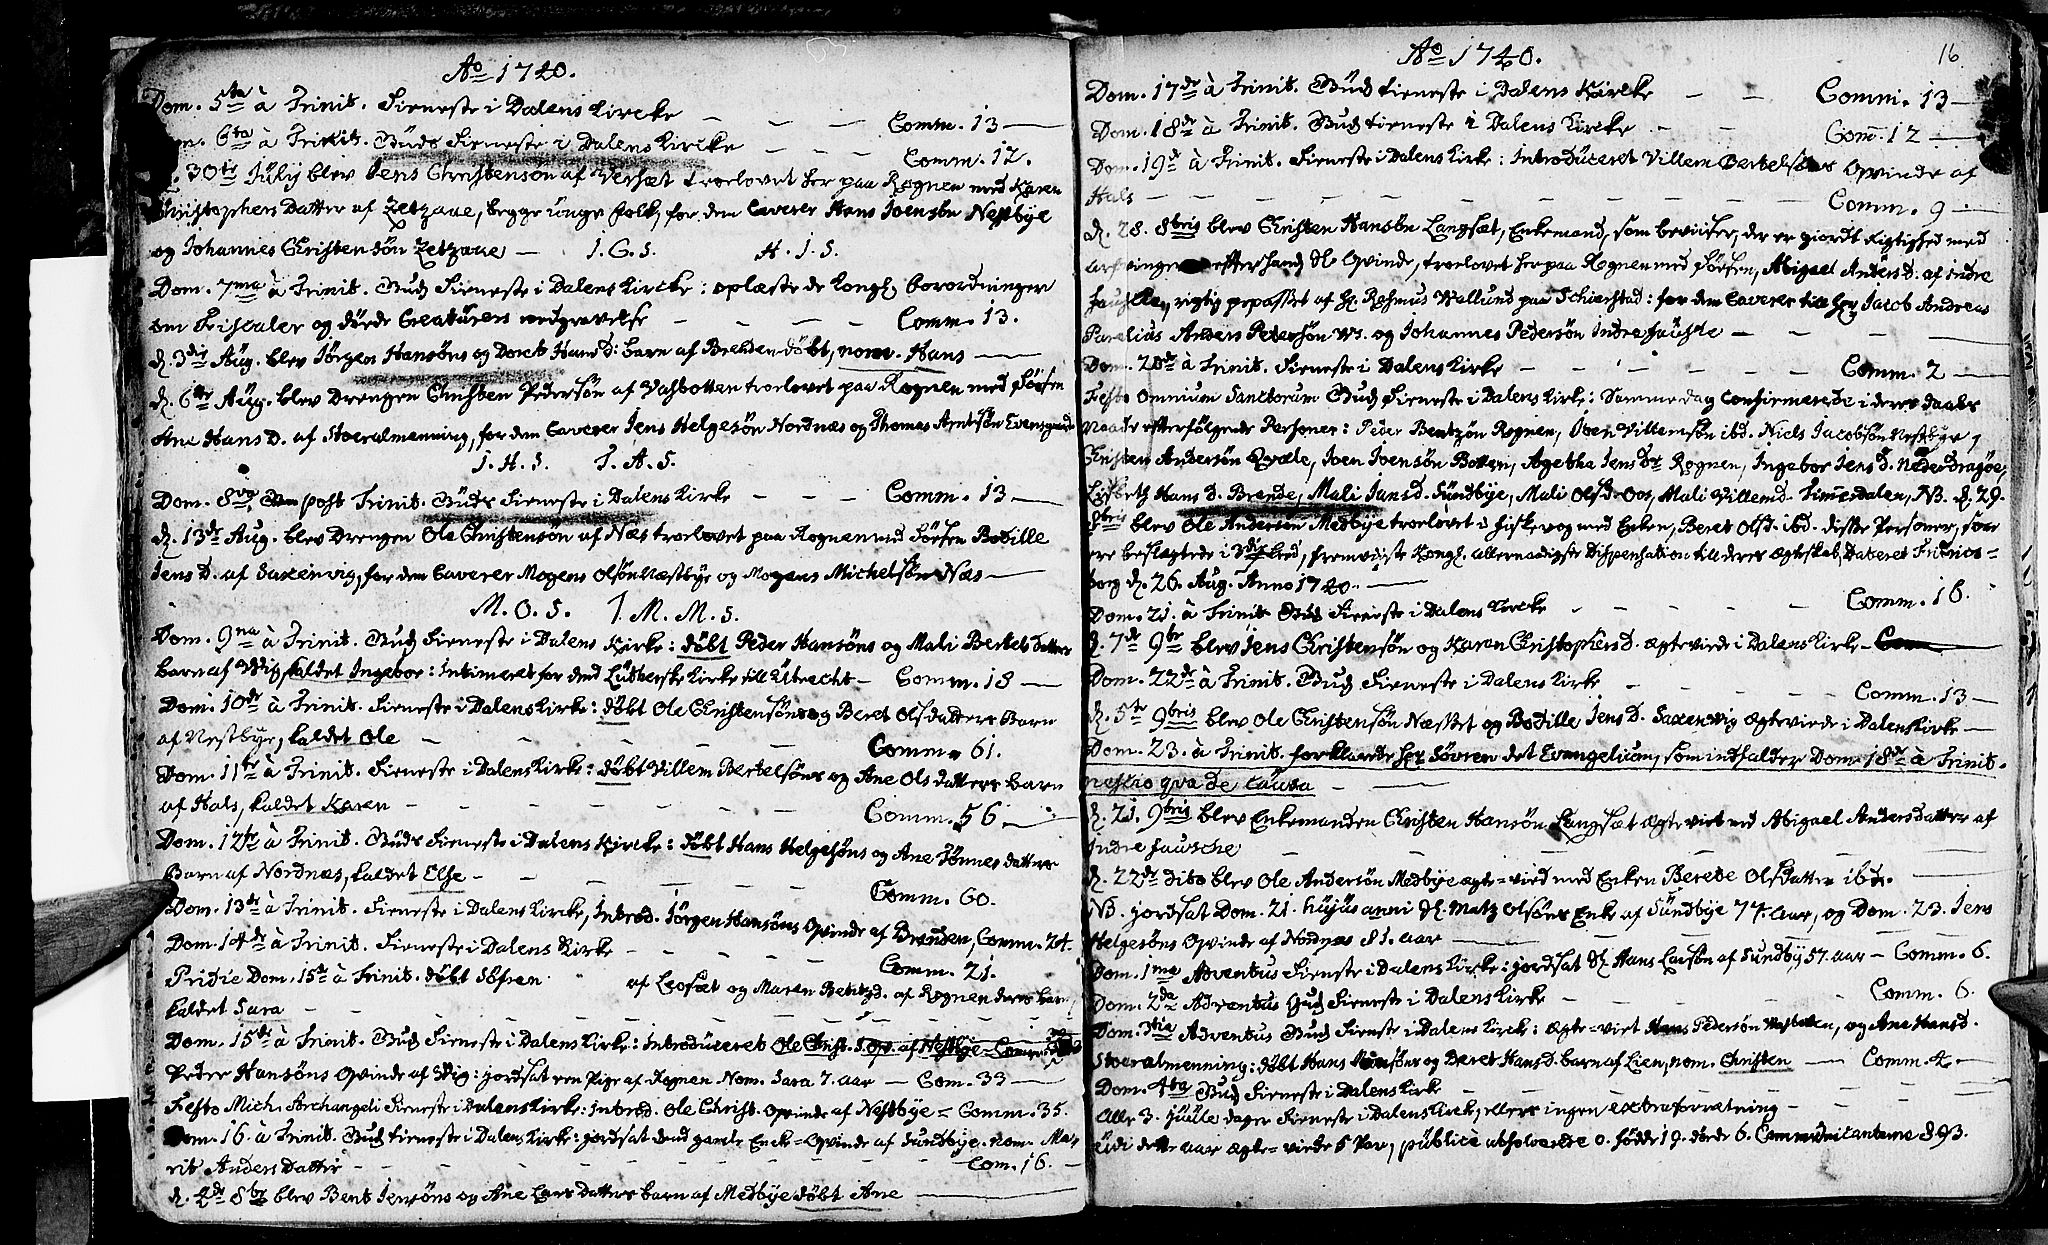 Ao 1740.
Dom. 5ta à Trinit. Tieneste i Dalens Kircke — — — Comm. 13 —
6ta à Trinit. Guds Tieneste i Dalens Kircke — — — Comm. 12.
30te July blev Jens Christensøn af Versæt troelovet her paa Rognen med Karen
Christophers Datter af Zetzaae, begge unge folk, for dem Caverer Hans Joensøn Nestbye
og Johannes Christensøn Zetzaae — J. C. S. H. J. S.
Dom. 7ma à Trinit. Guds Tieneste i Dalens Kircke: oplæste de Kongl. forordninger
om Fiscaler og døde Creaturers nedgravelse — — — — Comm. 13.
d. 3die Aug. blev Jørgen Hansøns og Dorete Hans D: barn af Brenden døbt, nom. Hans —
d. 6te Aug. blev Drengen Christen Pedersøn af Vasbotten troelovet paa Rognen med Pigen
Ane Hans D. af Storalmenning, for dem Caverer Jens Helgesøn Nordnæs og Thomas Arntsøn Evensgaard
J. H. S. T. A. S.
Dom. 8va post Trinit. Guds Tieneste i Dalens Kirke — — — Comm. 13 —
d. 13de Aug. blev Drengen Ole Christensøn af Næs troelovet paa Rognen med Pigen Bodille
Jens D. af Saxenvig, for dem Caverer Mogens Olsøn Næstbye og Mogens Michelsøn Næs —
M. O. S. M. M. S.
Dom. 9na à Trinit. Guds Tieneste i Dalens Kirke: døbt Peder Hansøns og Mali Bertels datters
barn af Vig, kaldet Ingebor: Intimeret for dend Lutherske Kirke till Utrecht — Comm. 18 —
Dom. 10de à Trinit. Tieneste i Dalens Kirke: døbt Ole Christensøns og Beret Olsdatters Barn
af Nestbye, kaldet Ole — — — — — — Comm. 61.
Dom. 11te à Trinit. Tieneste i Dalens Kirke: døbt Villem Bertelsøns og Ane Olsdatters barn
af Hals, kaldet Karen — — — — — — Comm. 56 —
Dom. 12te à Trinit. Guds Tieneste i Dalens Kircke: døbt Hans Helgesøns og Ane Tønnes datters
Barn af Nordnæs, kaldet Else — — — — — Comm. 60.
Dom. 13de à Trinit. Tieneste i Dalens Kircke, Introd. Jørgen Hansøns Qvinde af Brenden, Comm. 24.
Dom. 14de à Trinit. Tieneste i Dalens Kirke — — — — — Comm. 21.
Pridie Dom. 15de à Trinit. døbt Søfren af Leosæt og Maren Bentzd. af Rognen deres barn
kaldet Sara — — — — — — — —
Dom. 15de à Trinit. Guds Tieneste i Dalens Kirke: Introduceret Ole Christ. S. Qv. af Nestbye
Peder Hansøns Qvinde af Vig: jordsat en Pige af Rognen Nom. Sara 7. aar — Com. 33 —
Festo Mich. Archangeli Tieneste i Dalens Kirke: introd. Ole Christ. Qvinde af Nestbye — Comm. 35.
Dom. 16 à Trinit. Guds Tieneste i Dalens Kirke: jordsat dend gamle Encke-Qvinde af Sundbye, nom. Ma-
rit Anders Datter — — — — — — — Com. 16. —
d. 4de 8br blev Bent Jensøns og Ane Lars Datters barn af Medbye døbt Ane —
Ao 1740. 16
Dom. 17de à Trinit. Guds Tieneste i Dalens Kircke — — Comm. 13 —
Dom. 18de à Trinit. Guds Tieneste i Dalens Kircke — — Com. 12 —
Dom. 19de à Trinit. Tieneste i Dalens Kirke: Introduceret Villem Bertelsøns Qvinde af
Hals — — — — — — — — Comm. 9 —
d. 28. 8bris blev Christen Hansøn Langsæt, Enkemand, som beviiser, der er giordt rigtighed med
arfvingerne efter hans Sl. Qvinde, troelovet her paa Rognen med Pigen, Abigael Anders D. af indre
Fauske, rigtig repasset af Hr. Rasmus Wallund paa Schierstad: for dem Caverer till her Jacob Andreas
Parelius Anders Petersøn og Johannes Pedersøn Indre Fauske — — —
Dom. 20de à Trinit. Tieneste i Dalens Kirke — — — — Comm. 2 —
Festo Omnium Sanctorum Guds Tieneste i Dalens Kirke: Samme dag confirmerede i deres daabs
naade efterfølgende Personer: Peder Bentzøn Rognen, Joen Villemsøn ibd. Niels Jacobsøn Nestbye,
Christen Andersøn Qvæle, Joen Joensøn Botten, Agetha Jens Dr Rognen, Ingebor Jens D. Neder Dragøe,
Lisbeth Hans D. Brende, Mali Jans d. Sundbye, Mali Olsd. Oos, Mali Villemd. Timesdalen, NB. d. 29.
8bris blev Ole Andersøn Medbye troelovet i fiskevog med Enken, Beret Olsd. ibd. disse Personer, som
ere beslægtede i led, fremviiste Kongl. allernaadigste Dispensation till deres ægteskab, dateret Fridrichs-
borg d. 26. Aug. Anno 1740. —
Dom. 21. à Trinit. Guds Tieneste i Dalens Kircke — — — — Comm. 16.
d. 7de 9br blev Jens Christensøn og Karen Christophers D. ægteviede i Dalens Kirke —
Dom. 22de à Trinit. Guds Tieneste i Dalens Kirke — — — Comm. 13 —
d. 5te 9bris blev Ole Christensøn Næsset og Bodille Jens D. Saxenvig ægteviede i Dalens Kirke —
Dom. 23. à Trinit. forklarede her Søvren det Evangelium, som indfalder Dom. 18de à Trinit.
nescio qva de causa — —
d. 21. 9bris blev Enkemanden Christen Hansøn Langsæt ægteviet med Abigael Andersdatter af
Indre Fausche — — — — — —
d. 22de dito blev Ole Andersøn Medbye ægte-vied med Enken Berete Olsdatter ibd. —
NB. jordsat Dom. 21. hujus anni Sl. Matz Olsøns Enke af Sundbye 77. aar, og Dom. 23. Jens
Helgesøns Qvinde af Nordnæs 81. aar — — — —
Dom. 1ma Adventus Tieneste i Dalens Kirke: jordsat Sl. Hans Larsøn af Sundby 57. aar — Comm. 6.
Dom. 2da Adventus Guds Tieneste i Dalens Kirke — — — — Comm. 6.
Dom. 3tia Adventus Guds Tieneste i Dalens Kirck: ægte-viet Hans Pedersøn Vasbotten, og Ane Hansd.
Storalmenning: døbt Hans Monsøns og Beret Hans D. barn af Lien, nom. Christen — Comm. 4. —
Dom. 4ta Guds Tieneste i Dalens Kirk — — — —
Alle 3. Juule dager Tieneste i Dalens Kirck, ellers ingen extraforretning — — —
udi dette aar ægte-viede 5 Par, publicè absolverede 0. fødde 19. døde 6. Communicanterne 893.